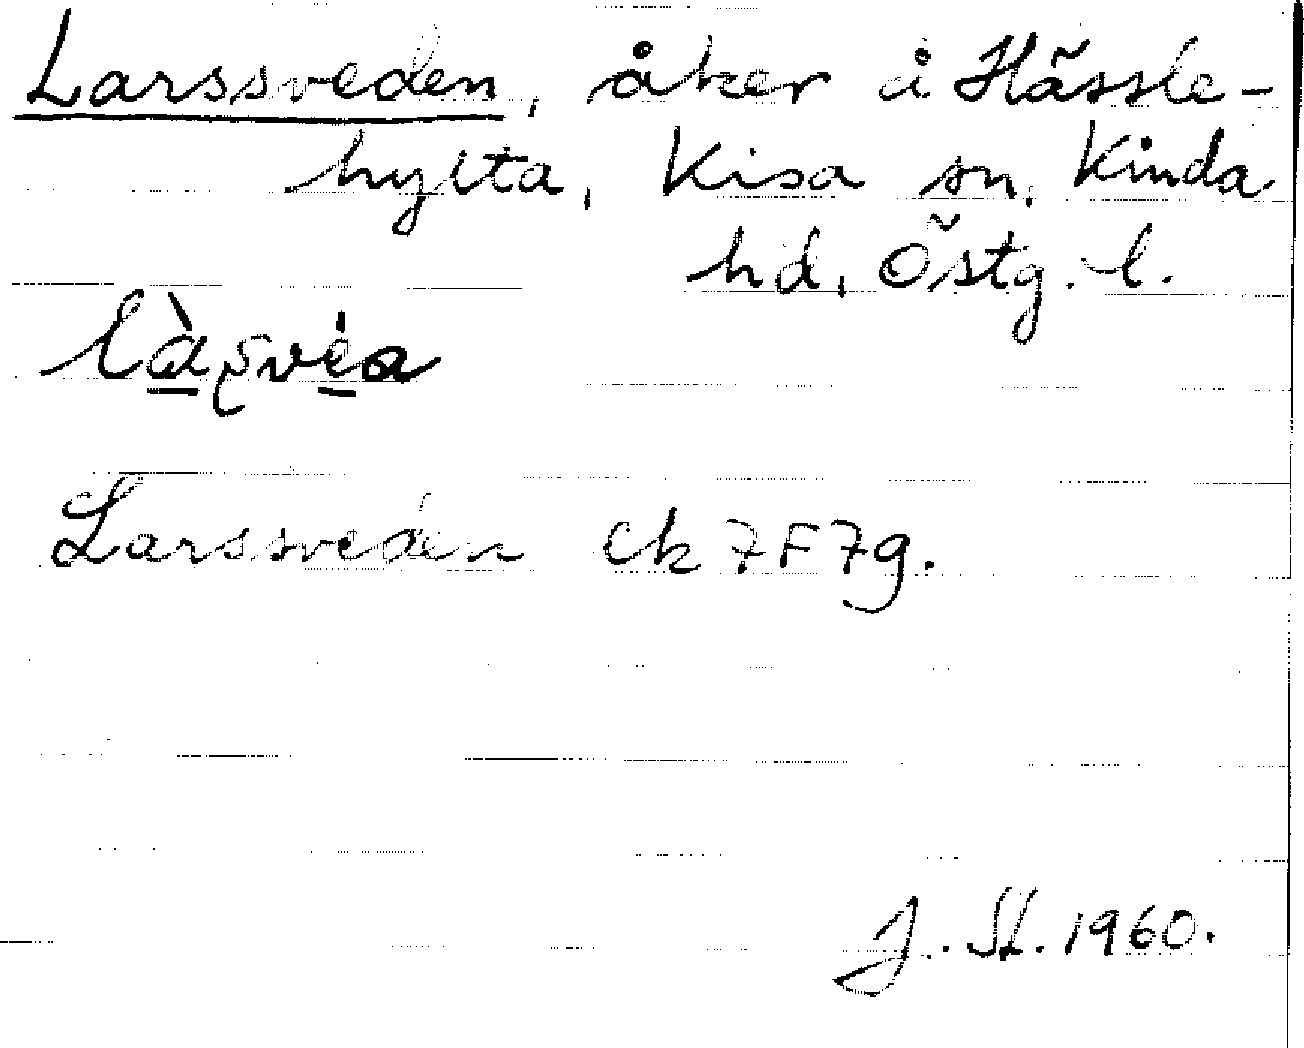 Larssveden, åker å Hässle-
hylta, Kisa sn, Kinda
hd, Östg. l.
làʂvéa
Larssveden ek 7F7g.
J. St. 1960.